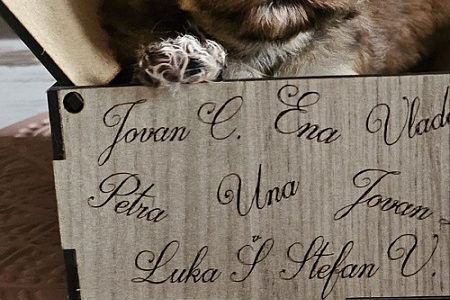 Jovan C. Ena Vlad
Petra Una Jovan
Luka Š Stefan V.